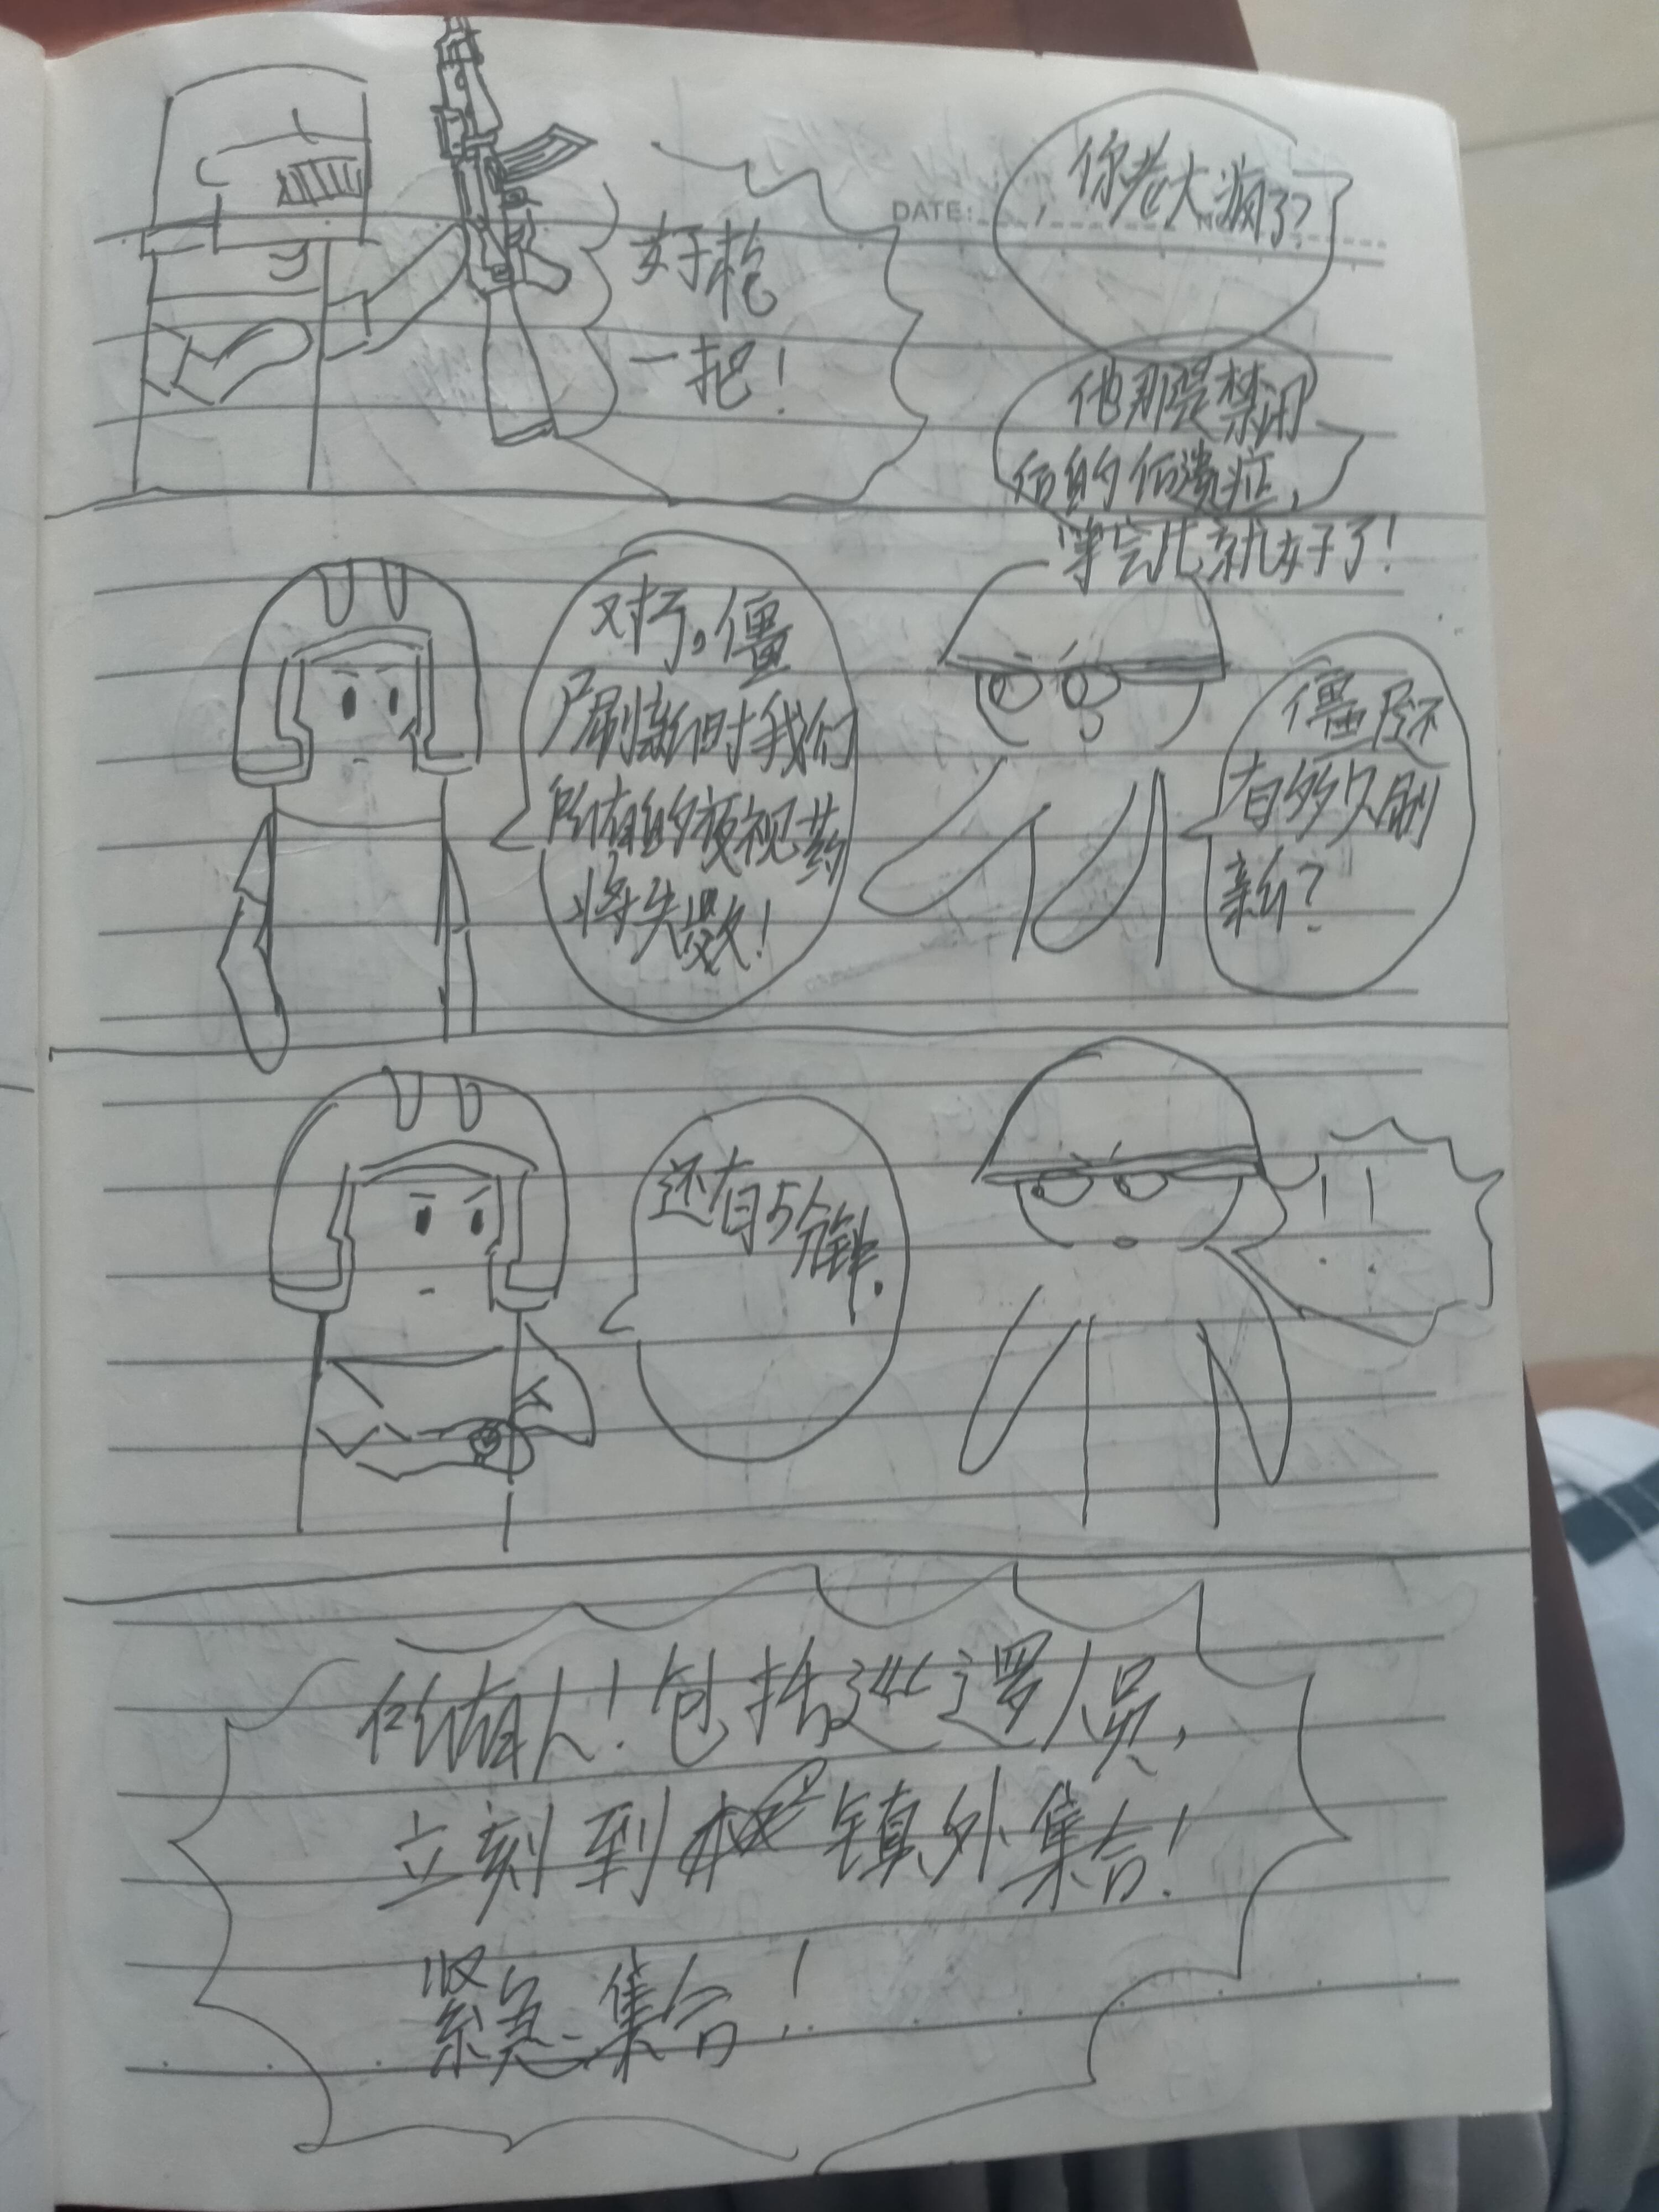 DATE:
好枪
一把！
你老大疯了？
他那是禁闭
后的后遗症，
等会儿就好了！
对了。僵
尸刷新时我们
所有的夜视药
将失效！
僵尸还
有多久刷
新？
还有5分钟.
！！
所有人！包括巡逻人员，
立刻到镇外集合！
紧急集合！